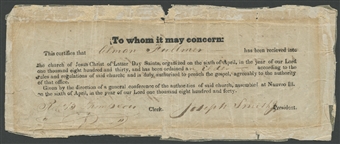 To whom it may concern:
This certifies that has been recieved into
the church of Jesus Christ of Latter Day Saints, organized on the sixth of April, in the year of our Lord
one thousand eight hundred and thirty, and has been ordained according to the
rules and regulations of said church; and is duly authorized to preach the gospel, agreeably to the authority
of that office.
Given by the direction of a general conference of the authorities of said church, assembled at Nauvoo Ill.
on the sixth of April, in the year of our Lord one thousand eight hundred and forty.
Clerk Joseph Smith President.